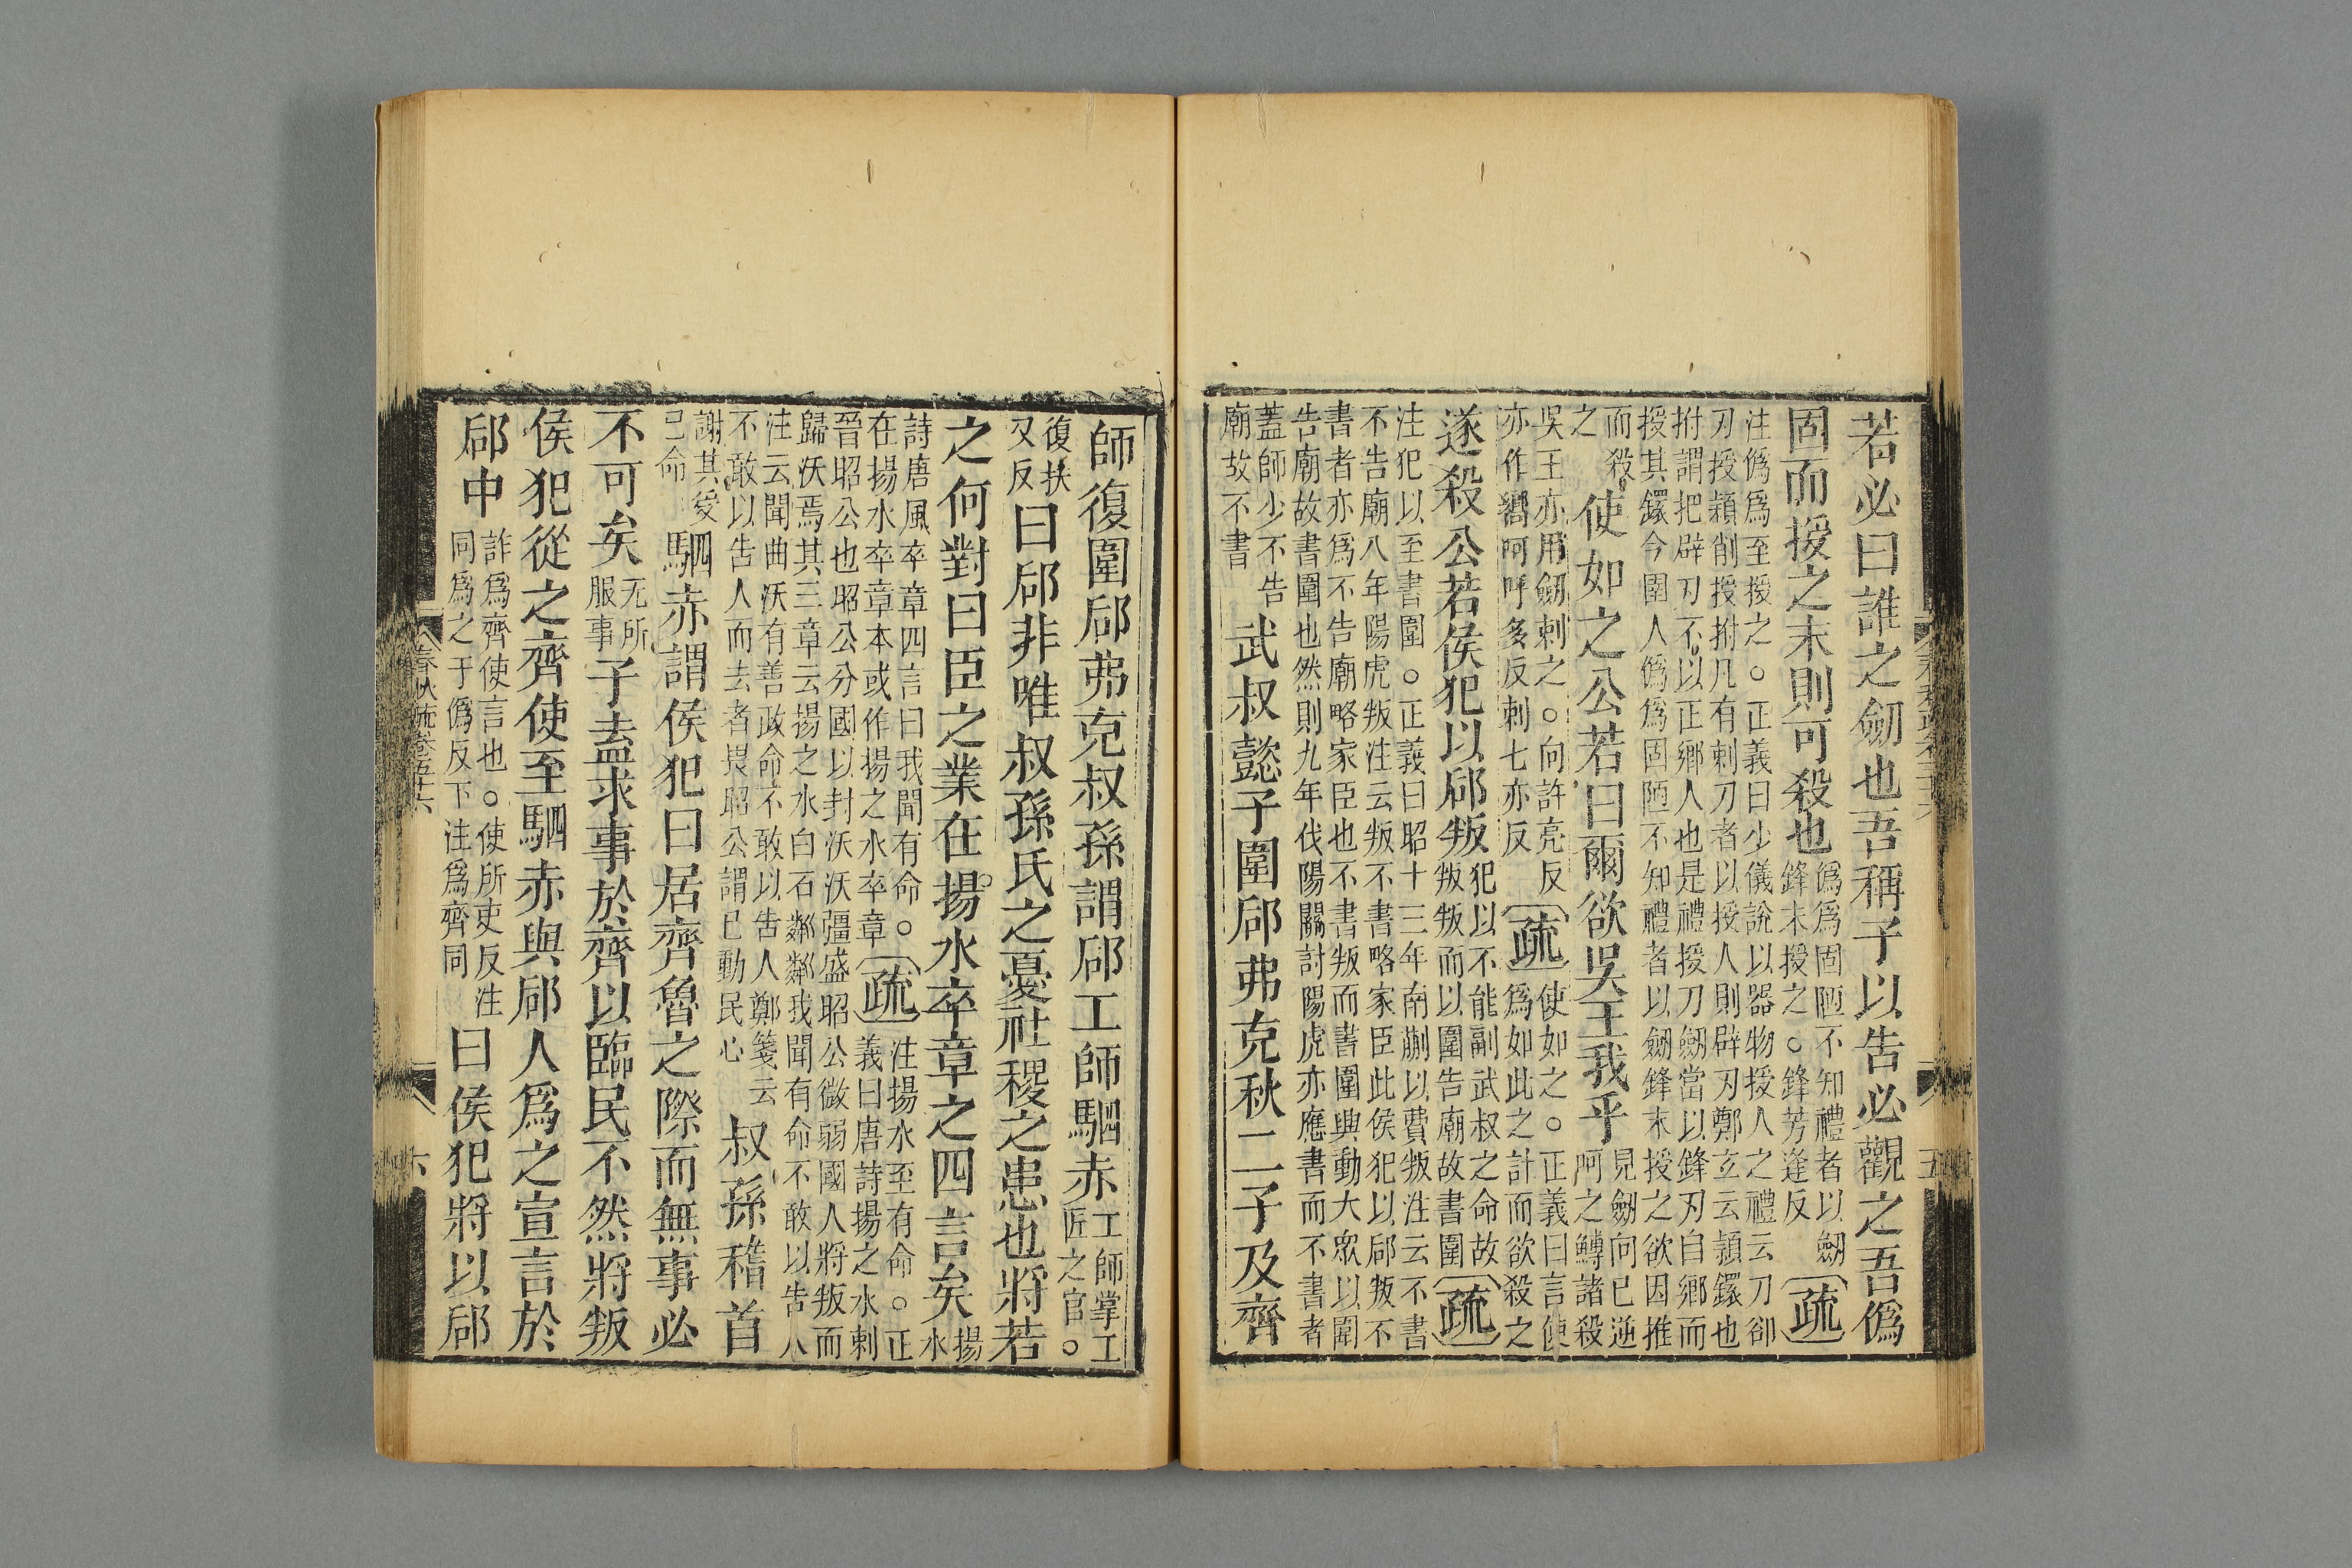 若必曰誰之劒也吾稱子以告必觀之吾僞
固而授之末則可殺也僞爲固陋不知禮者以劒
鋒末授之○鋒芳逢反疏
注僞爲至授之○正義曰少儀說以器物授人之禮云刀卻
刃授穎削授拊凡有刺刀者以授人則辟刃鄭玄云穎鐶也
拊謂把辟刃不以正鄉人也是禮授刀劒當以鋒刃自鄉而
授其鐶今圉人僞爲固陋不知禮者以劒鋒末授之欲因推
而殺
之使如之公若曰爾欲吳王我乎見劒向已逆
呵之鱄諸殺
吳王亦用劒刺之○向許亮反
亦作嚮呵呼多反刺七亦反疏使如之○正義曰言使
爲如此之計而欲殺之
遂殺公若侯犯以郈叛犯以不能副武叔之命故
叛叛而以圍告廟故書圍疏
注犯以至書圍○正義曰昭十三年南蒯以費叛注云不書
不告廟八年陽虎叛注云叛不書略家臣此侯犯以郈叛不
書者亦爲不告廟略家臣也不書叛而書圍與動大眾以圍
告廟故書圍也然則九年伐陽關討陽虎亦應書而不書者
蓋師少不告
廟故不書武叔懿子圍郈弗克秋二子及齊
師復圍郈弗克叔孫謂郈工師駟赤工師掌工
匠之官○
復扶
又反曰郈非唯叔孫氏之憂社稷之患也將若
之何對曰臣之業在揚水卒章之四言矣揚
水
詩唐風卒章四言曰我聞有命○
在揚水卒章本或作揚之水卒章疏注揚水至有命○正
義曰唐詩揚之水刺
晉昭公也昭公分國以封沃沃彊盛昭公微弱國人將叛而
歸沃焉其三章云揚之水白石粼粼我聞有命不敢以告人
注云聞曲沃有善政命不敢以告人鄭箋云
不敢以告人而去者畏昭公謂已動民心叔孫稽首
謝其受
已命駟赤謂侯犯曰居齊魯之際而無事必
不可矣无所
服事子盍求事於齊以臨民不然將叛
侯犯從之齊使至駟赤與郈人爲之宣言於
郈中詐爲齊使言也○使所吏反注
同爲之于僞反下注爲齊同曰侯犯將以郈
春秋疏卷五十六
六
五